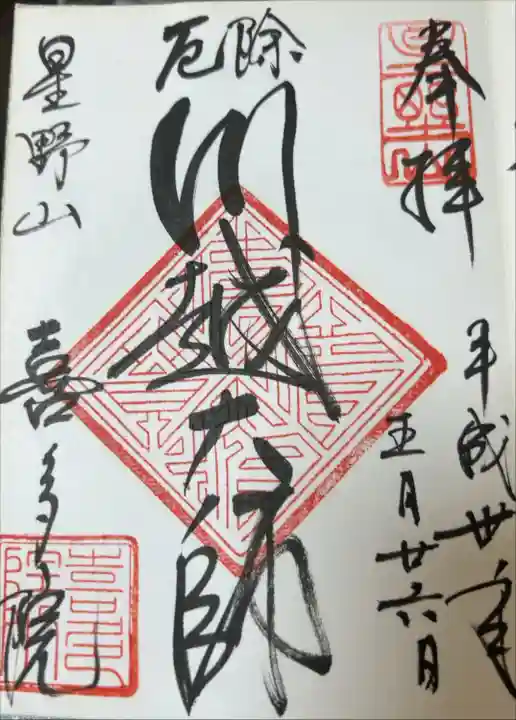 奉拝
平成丗年
五月廿六日
厄除
川越大師
星野山
喜多院